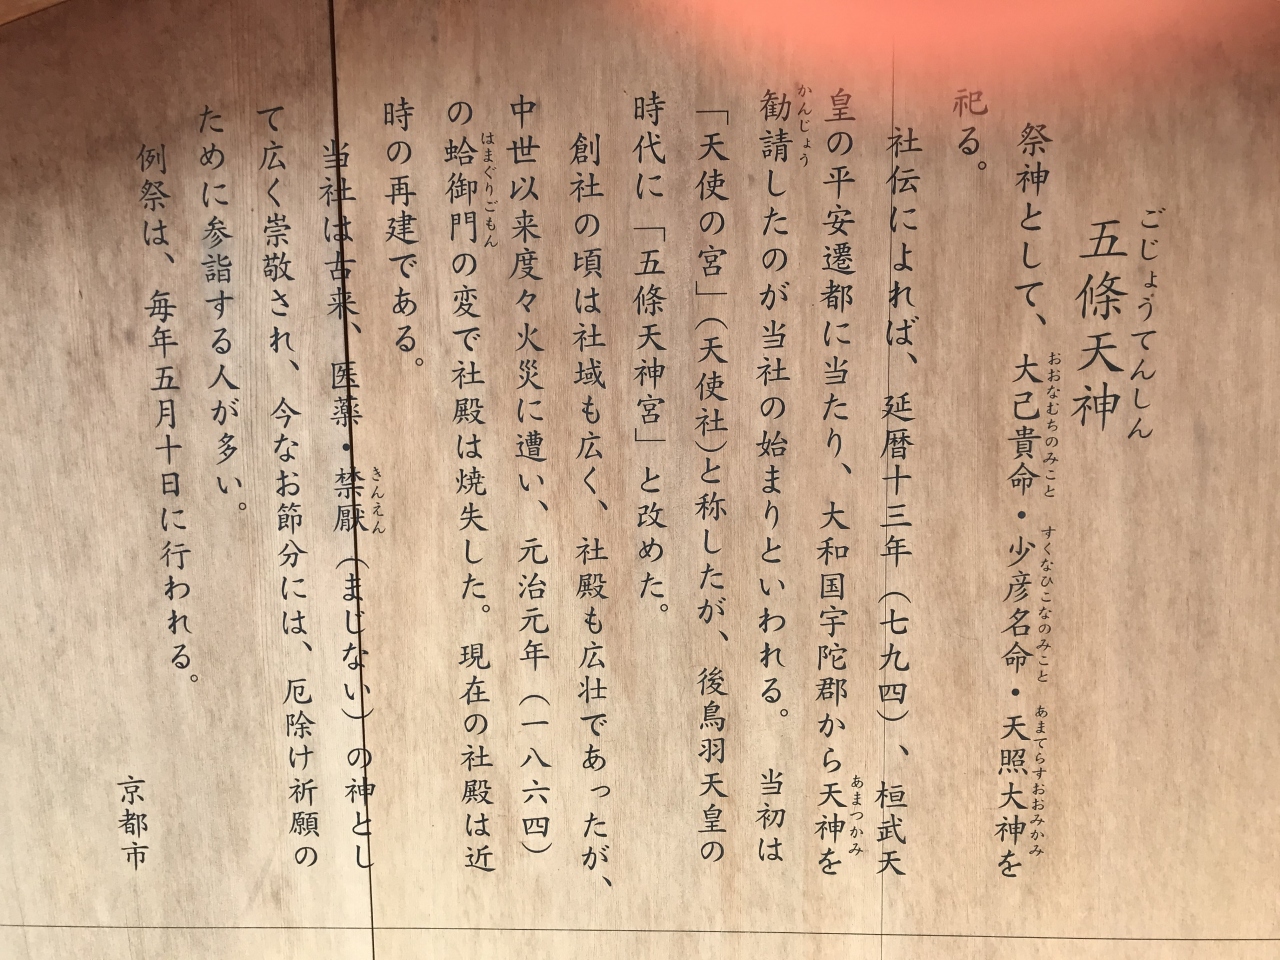 ごじょうてんしん
五條天神
祭神として、大己貴命・少彦名命・天照大神を
おおなむちのみこと すくなひこなのみこと あまてらすおおみかみ
祀る。
社伝によれば、延暦十三年（七九四）、桓武天
皇の平安遷都に当たり、大和国宇陀郡から天神を
あまつかみ
勧請したのが当社の始まりといわれる。当初は
かんじょう
「天使の宮」（天使社）と称したが、後鳥羽天皇の
時代に「五條天神宮」と改めた。
創社の頃は社域も広く、社殿も広壮であったが、
中世以来度々火災に遭い、元治元年（一八六四）
の蛤御門の変で社殿は焼失した。現在の社殿は近
はまぐりごもん
時の再建である。
当社は古来、医薬・禁厭（まじない）の神とし
きんえん
て広く崇敬され、今なお節分には、厄除け祈願の
ために参詣する人が多い。
例祭は、毎年五月十日に行われる。
京都市